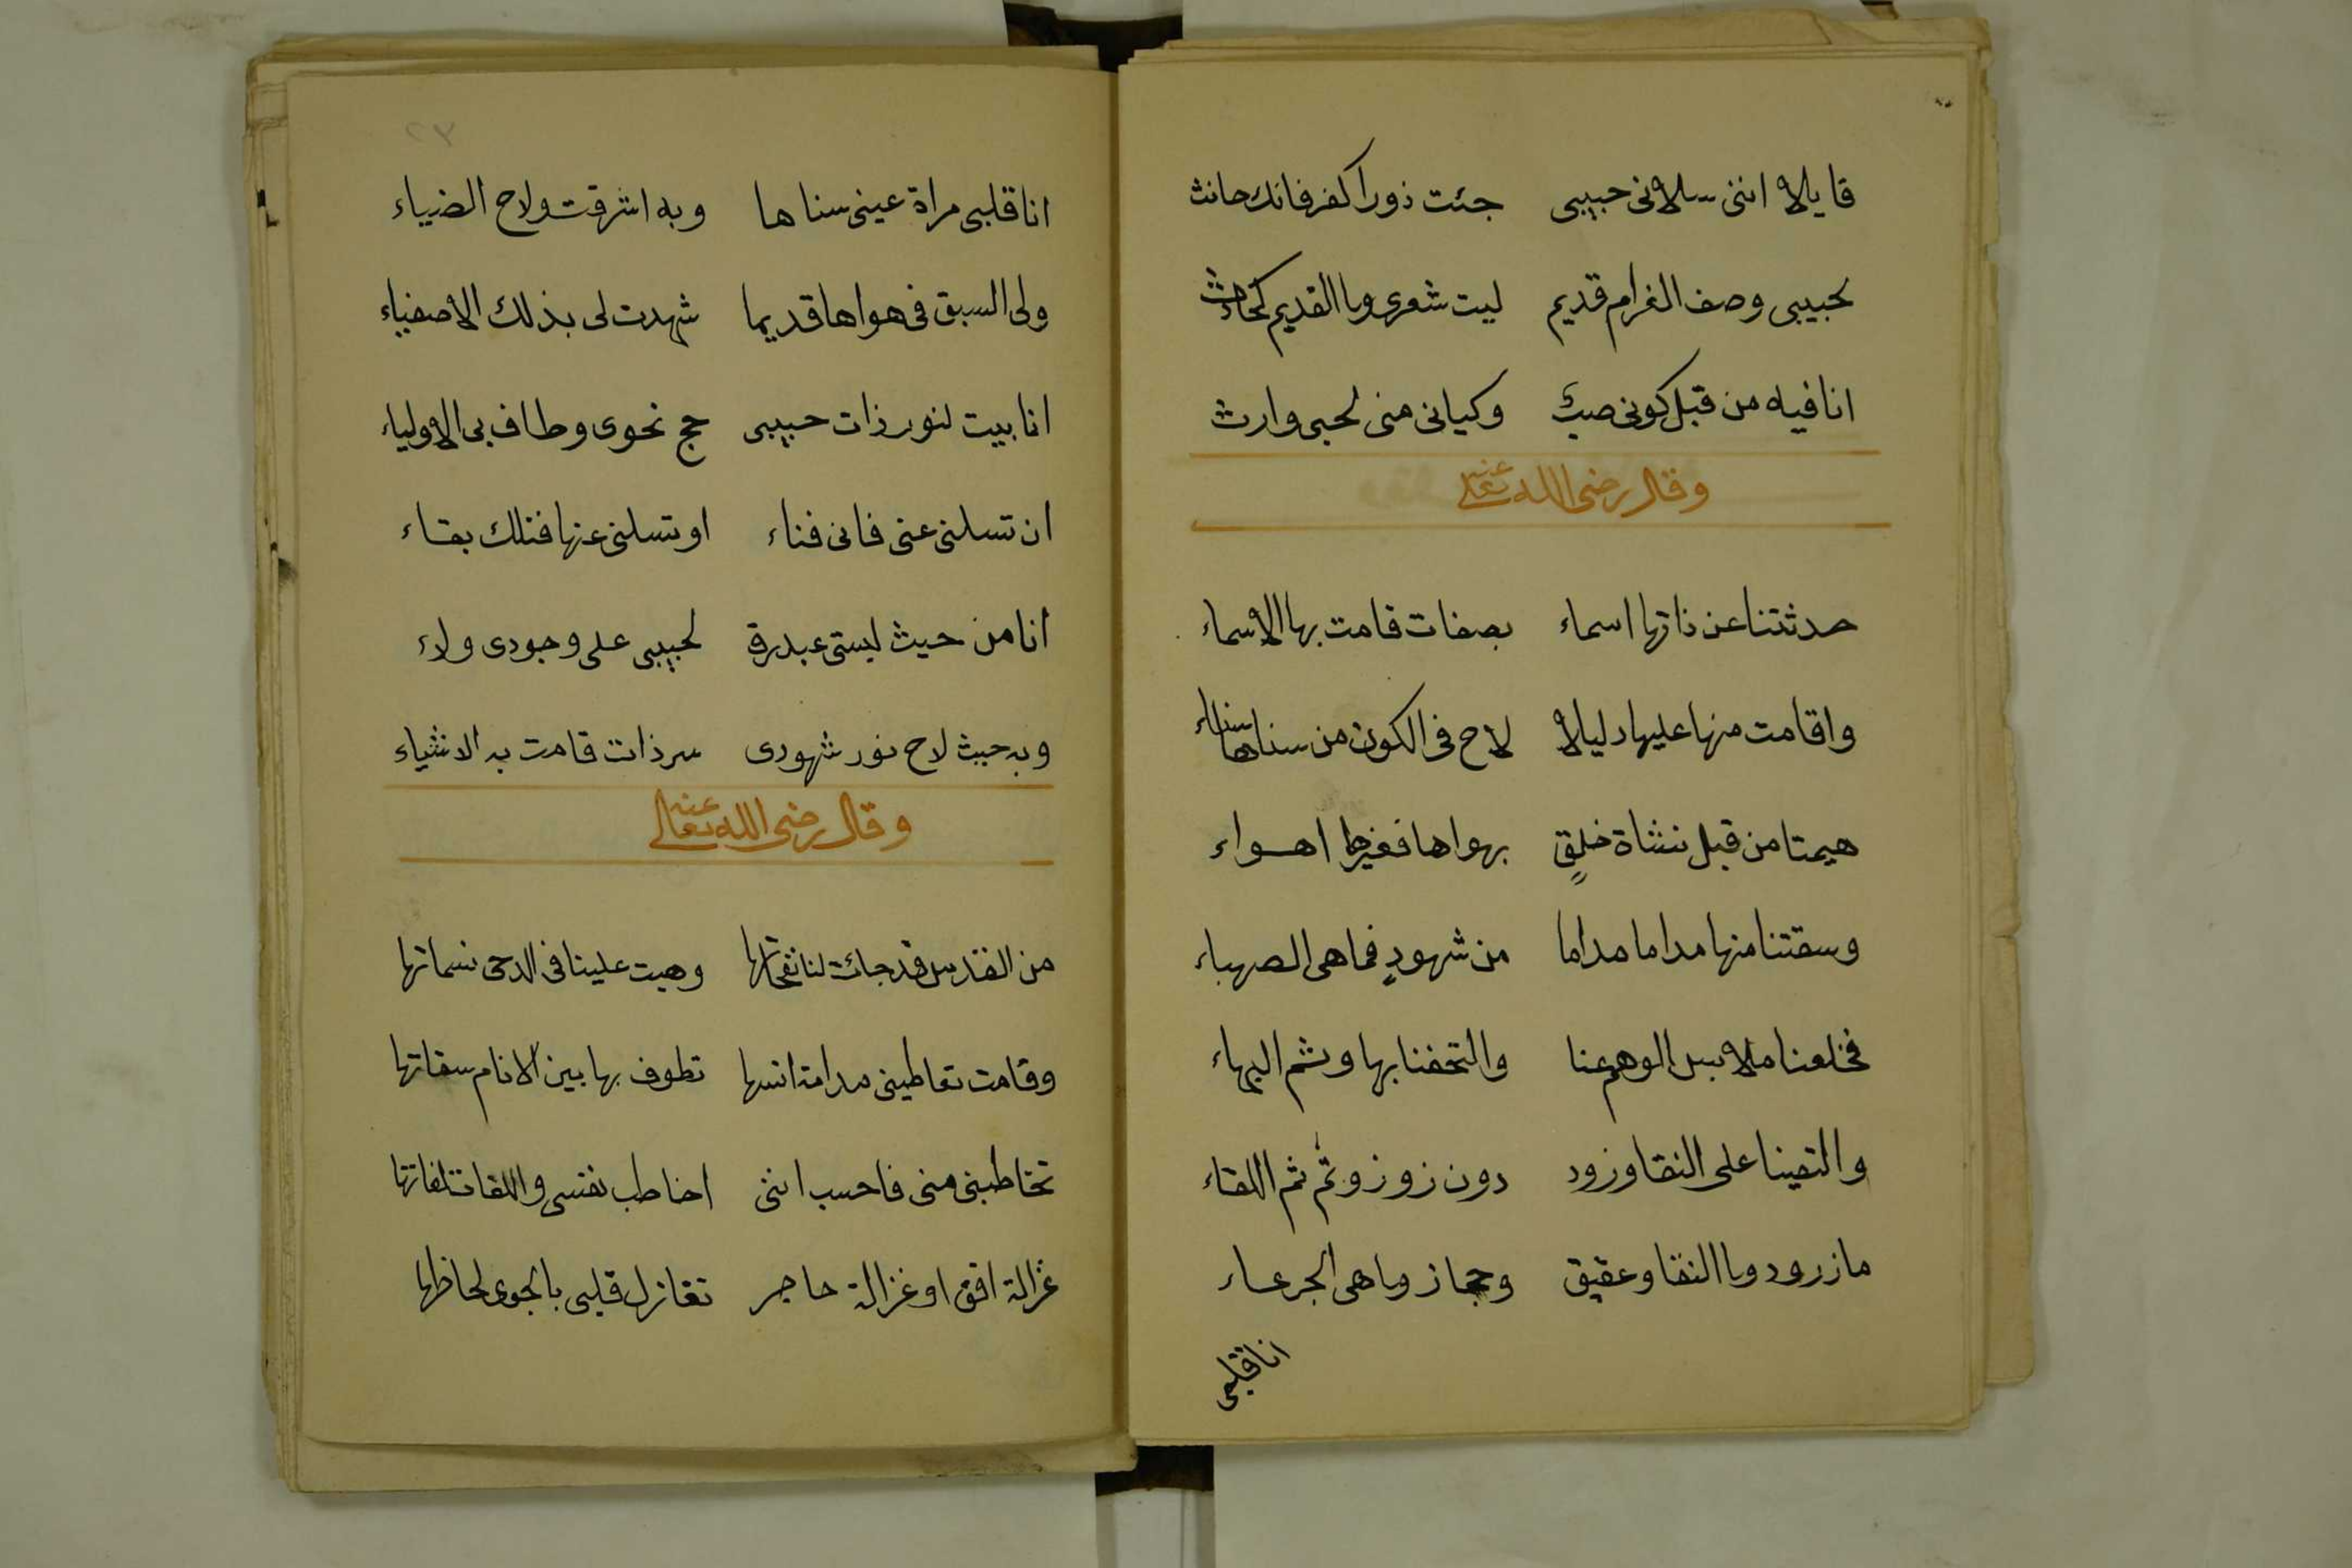 قايلا اننى سلانى حبيبى جئت زورا كفر فانك حانث
لحبيبى وصف الغرام قديم ليت شعرى وما القديم كحادث
انا فيه من قبل كونى صب وكيانى منى لحبى وارث
وقال رضى الله تعالى عنه
حدثتنا عن ذاتها اسماء بصفات قامت بها الاسماء
واقامت منها عليها دليلا لاح فى الكون من سناها سناء
هيمتنا من قبل نشاة خلقٍ بهواها فغيرها اهواء
وسقتنا منها مداما مداما من شهودٍ فما هى الصهباء
فخلعنا ملابس الوهم عنا والتحفنا بها وثم البهاء
والتقينا على النقا وزود دون زوز وثم ثم اللقاء
ما زرود وما النقا وعقيق وحجاز وما هى الجرعاء
انا قلبى
٢٣
انا قلبى مراة عينى سناها وبه اشرقت ولاح الضياء
ولى السبق فى هواها قديما شهدت لى بذلك الاصفياء
انا بيت لنور ذات حبيبى حج نحوى وطاف بى الاولياء
ان تسلنى عنى فانى فناء او تسلنى عنها فتلك بقاء
انا من حيث ليستى عبد رق لحبيبى على وجودى ولاء
وبه حيث لاح نور شهودى سر ذات قامت به الاشياء
وقال رضى الله تعالى عنه
من القدس قد جائت لنا نفحاتها وهبت علينا فى الدجى نسماتها
وقامت تعاطينى مدامة انسها تطوف بها بين الانام سقاتها
تخاطبنى منى فاحسب اننى اخاطب نفسى واللقا تلفاتها
غزالة افق او غزالة حاجر تغازل قلبى بالجوى لحاظها